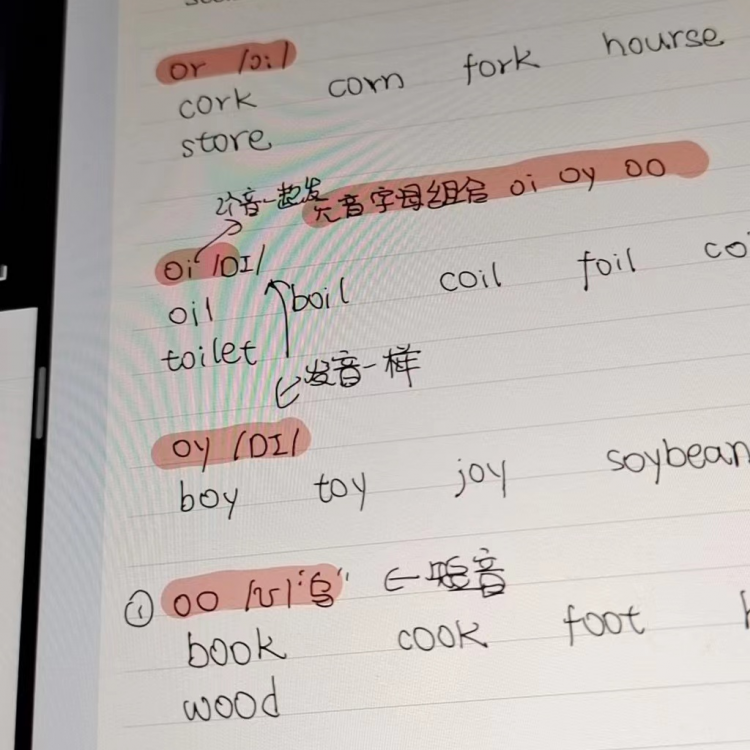 or /ɔː/
cork corn fork hourse
store
2个音一起发 元音字母组合 oi oy oo
oi /ɒɪ/
oil boil coil foil
toilet
发音一样
oy /ɒɪ/
boy toy joy soybean
① oo /ʊ/ "乌" ← 短音
book cook foot
wood